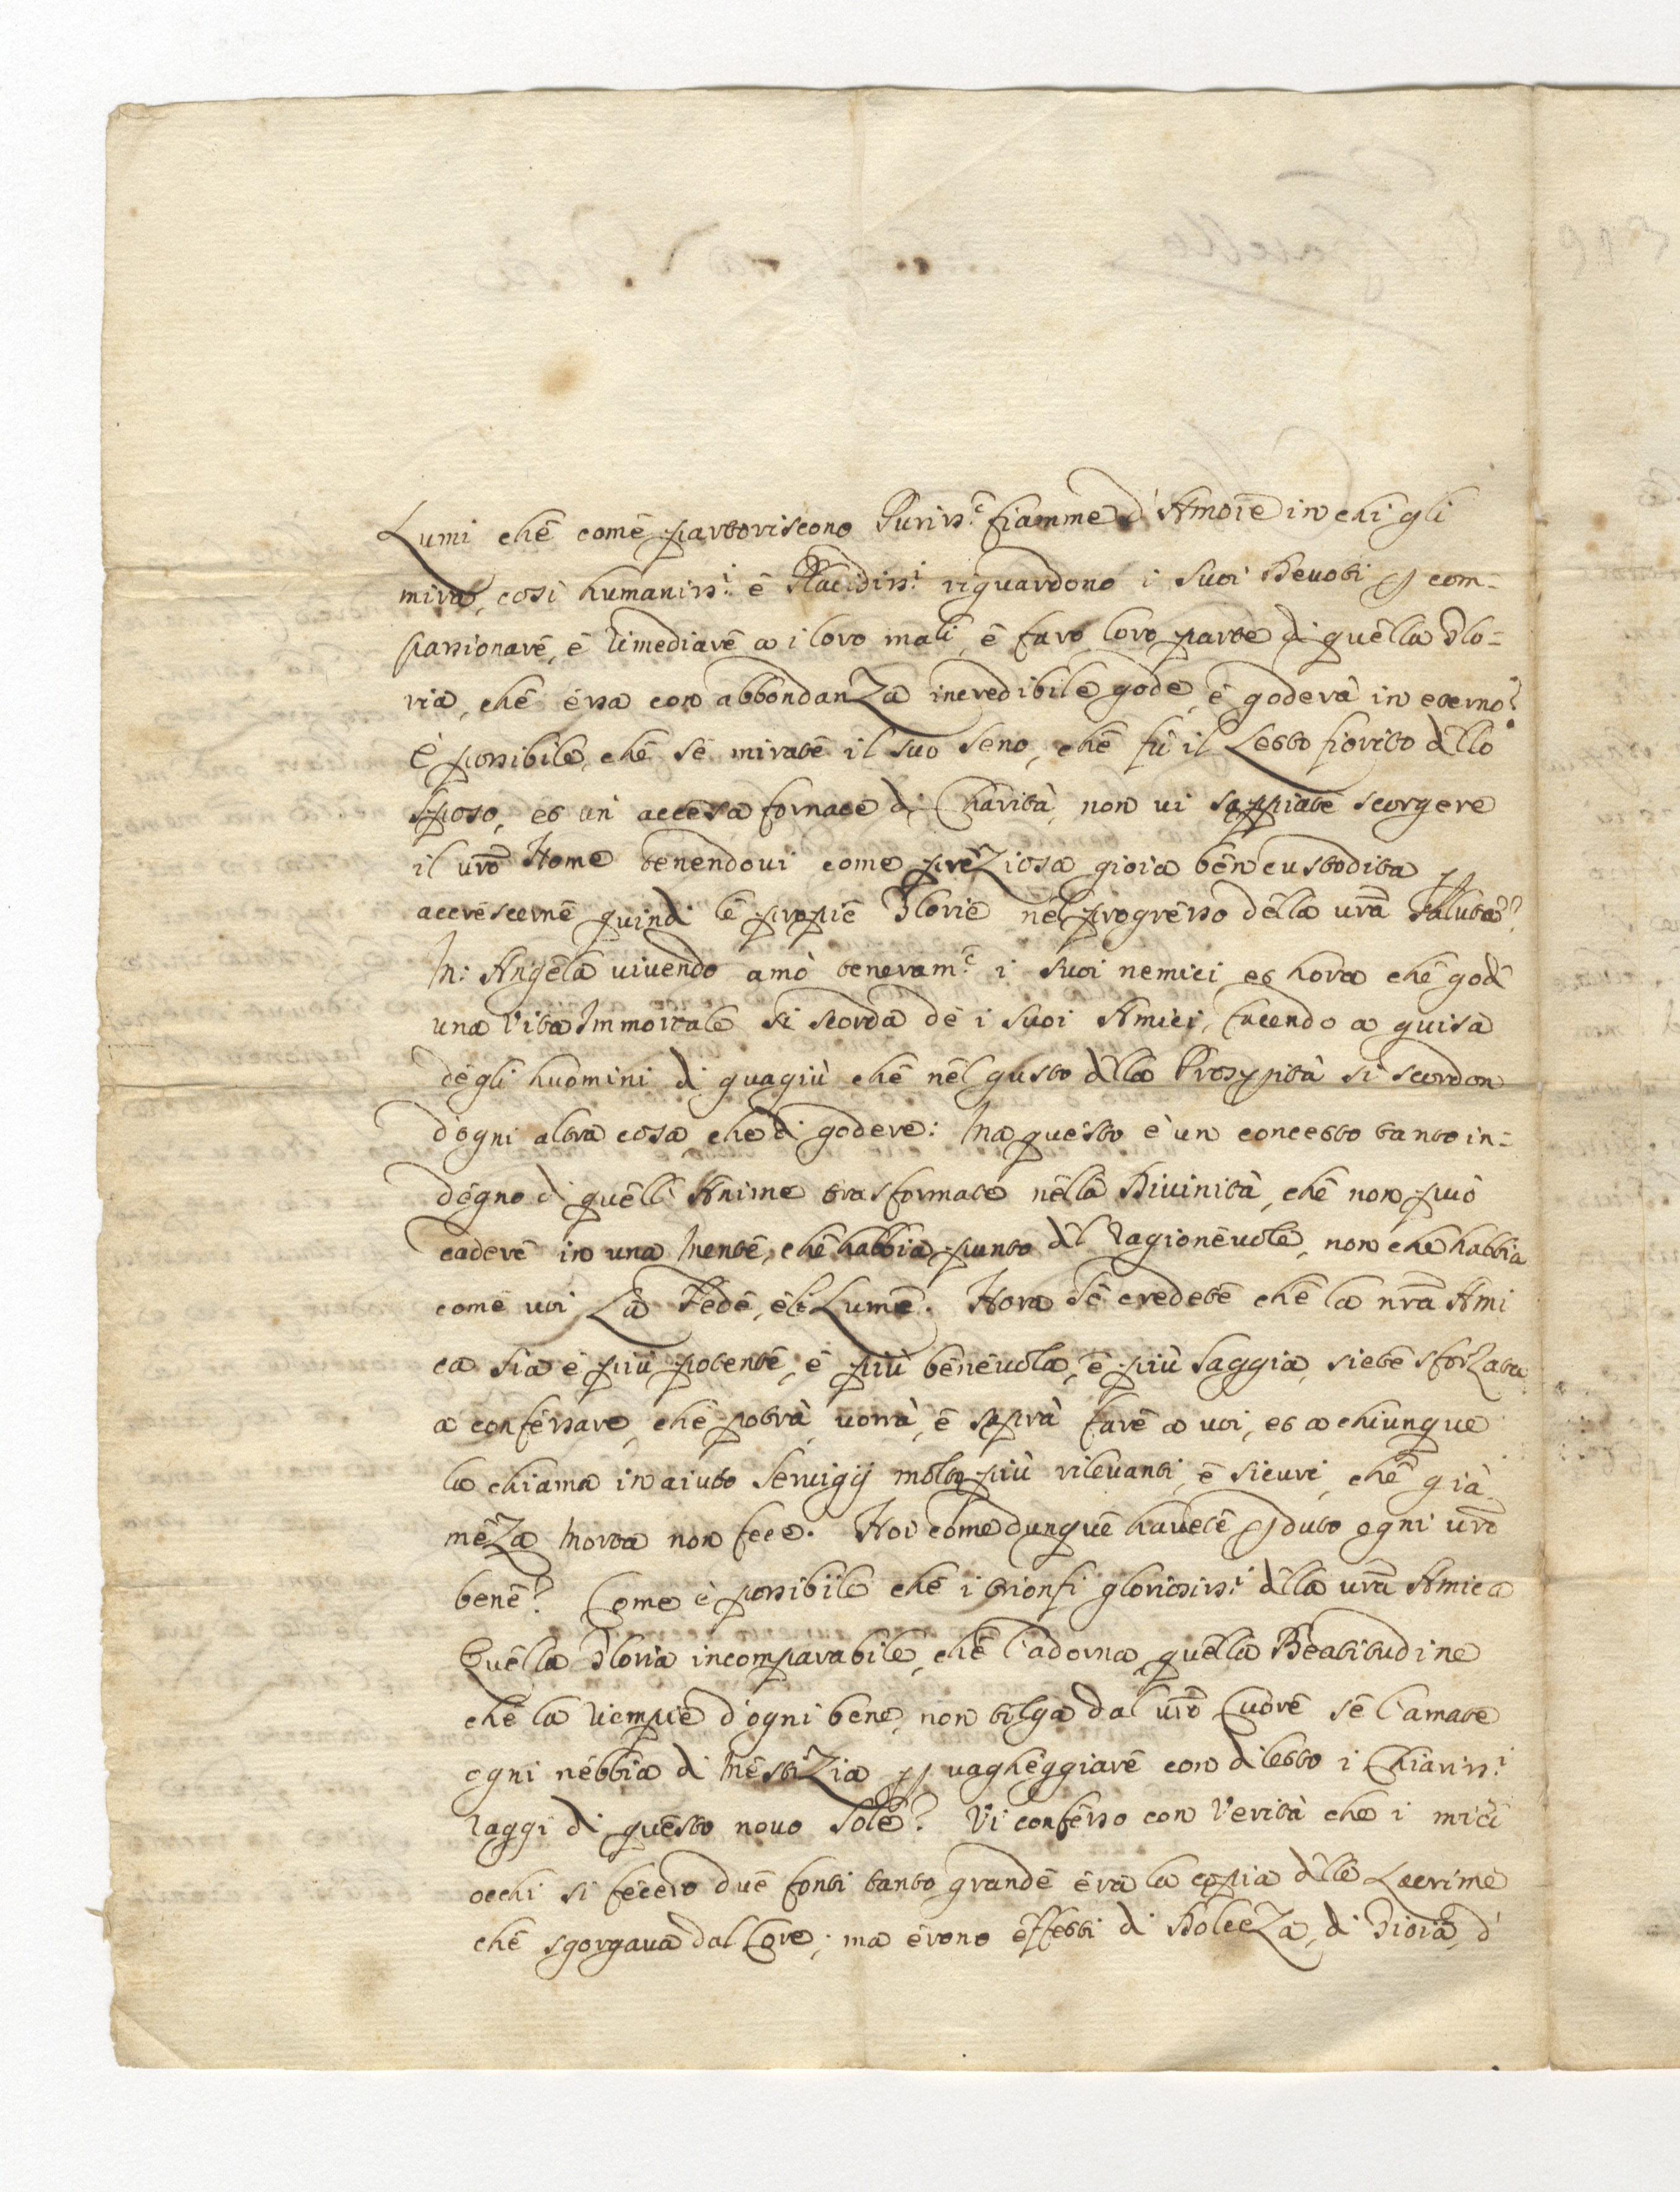 Lumi chē comē partoriscono Puriss.e fiamme d'Amore in chi gli
mira, cosi humaniss.i ē Placidiss.i riguardono i suoi Devoti p com=
passionarē, ē rimediarē a i loro mali, ē faro loro parte di quēlla Glo=
ria, chē ēssa con abbondanza incredibile gode, ē goderà in eterno?
È possibile, chē sē miratē il suo seno, chē fù il Letto fiorito dllo
sposo, et un' accēsa fornace di Charità, non vi sappiatē scorgere
il vrō Nome tenendovi come prēziosa gioia bēn custodita p
accrēscernē quindi lē propiē Glorie nēl progrēsso dēlla vrā Saluta??
M: Angēla vivendo amò teneram.e i suoi nemici et hora chē godē
una Vita Immortale si scorda dē i suoi Amici, facendo a guisa
dēgli huomini di quagiù chē nēl gusto dlla Prospità si scordon
d'ogni altra cosa, che di godere: Ma quēsto è un concetto tanto in=
dēgno di quēllē Anime trasformate nēlla Divinità, chē non può
caderē in una Mentē, chē habbia punto dl ragionēvole, non che habbia
comē voi La Fedē, ēl Lumē. Hora sē credetē chē la nrā Ami
ca sia ē più potentē, ē più bēnēvola, ē più saggia, sietē sforzata
a confēssare, chē potrà, vorrà, ē saprà farē a voi, et a chiunque
la chiama in aiuto servigij molto più rilevanti, ē sicuri, chē già
mēza Morta non fece. Hor come dunquē havetē pduto ogni vrō
benē? Come è possibile chē i trionfi gloriosiss.i dlla vrā Amica
Quēlla Gloria incomparabile, chē l'adorna, quēlla Bēatitudine
chē la riempie d'ogni bene, non tolga dal vrō Cuorē sē l'amate
ogni nēbbia di Mēstizia p vaghēggiarē con diletto i Chiariss.i
raggi di quēsto novo Solē? Vi confēsso con Verità che i miēi
occhi si fēcero duē fonti tanto grandē ēra la copia dllē Lacrimē
chē sgorgava dal Core; ma ērono ēffetti di Dolceza, di Gioia, d'